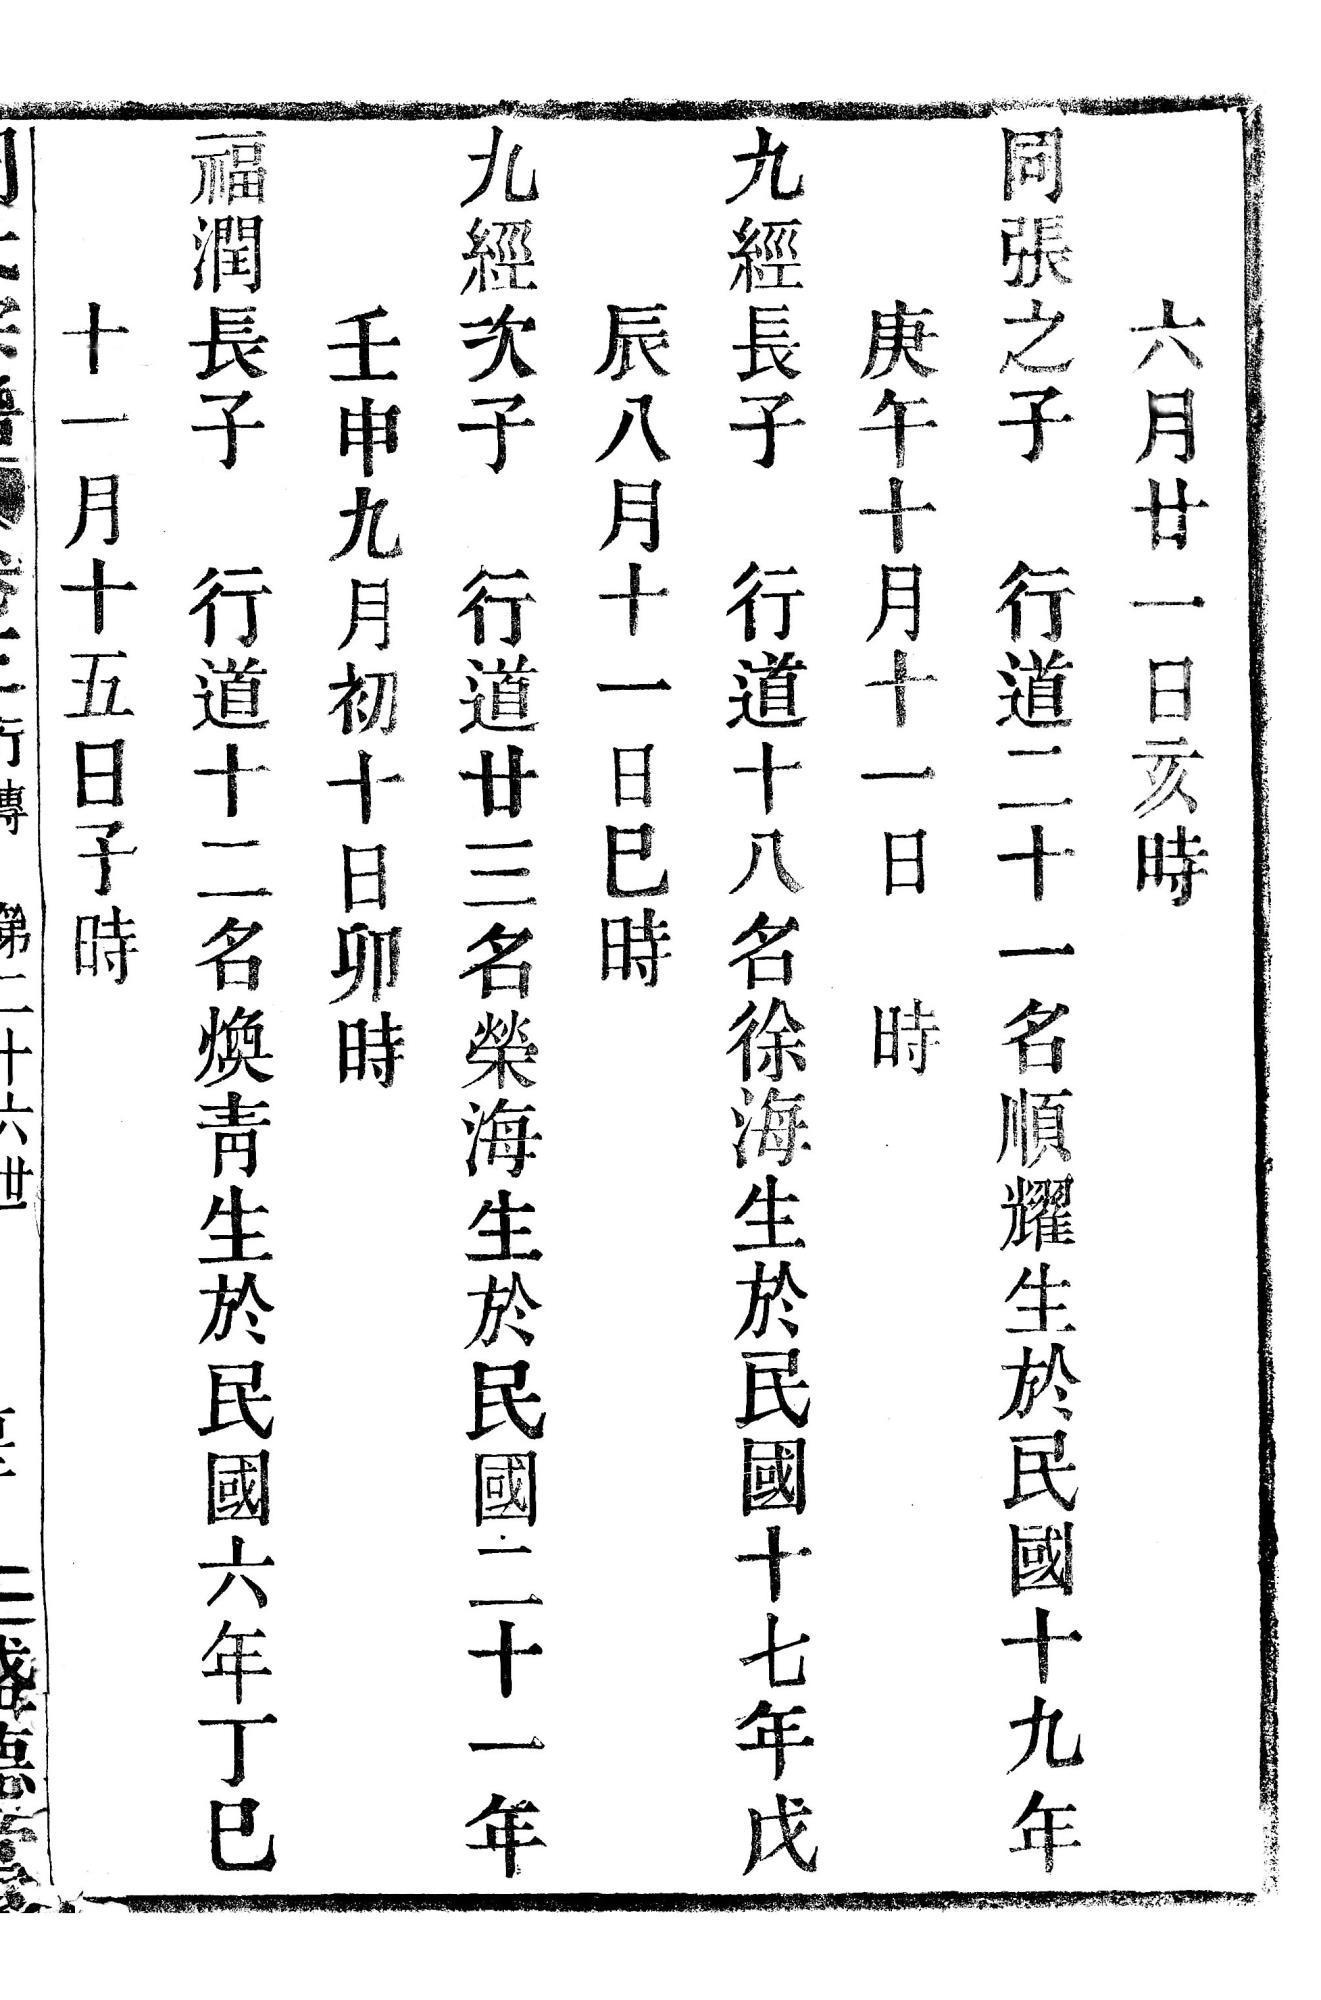 六月廿一日亥時
同張之子　行道二十一名順耀生於民國十九年
庚午十月十一日　時
九經長子　行道十八名徐海生於民國十七年戊
辰八月十一日巳時
九經次子　行道廿三名榮海生於民國二十一年
壬申九月初十日卯時
福潤長子　行道十二名煥青生於民國六年丁巳
十一月十五日子時
行傳　第二十六世